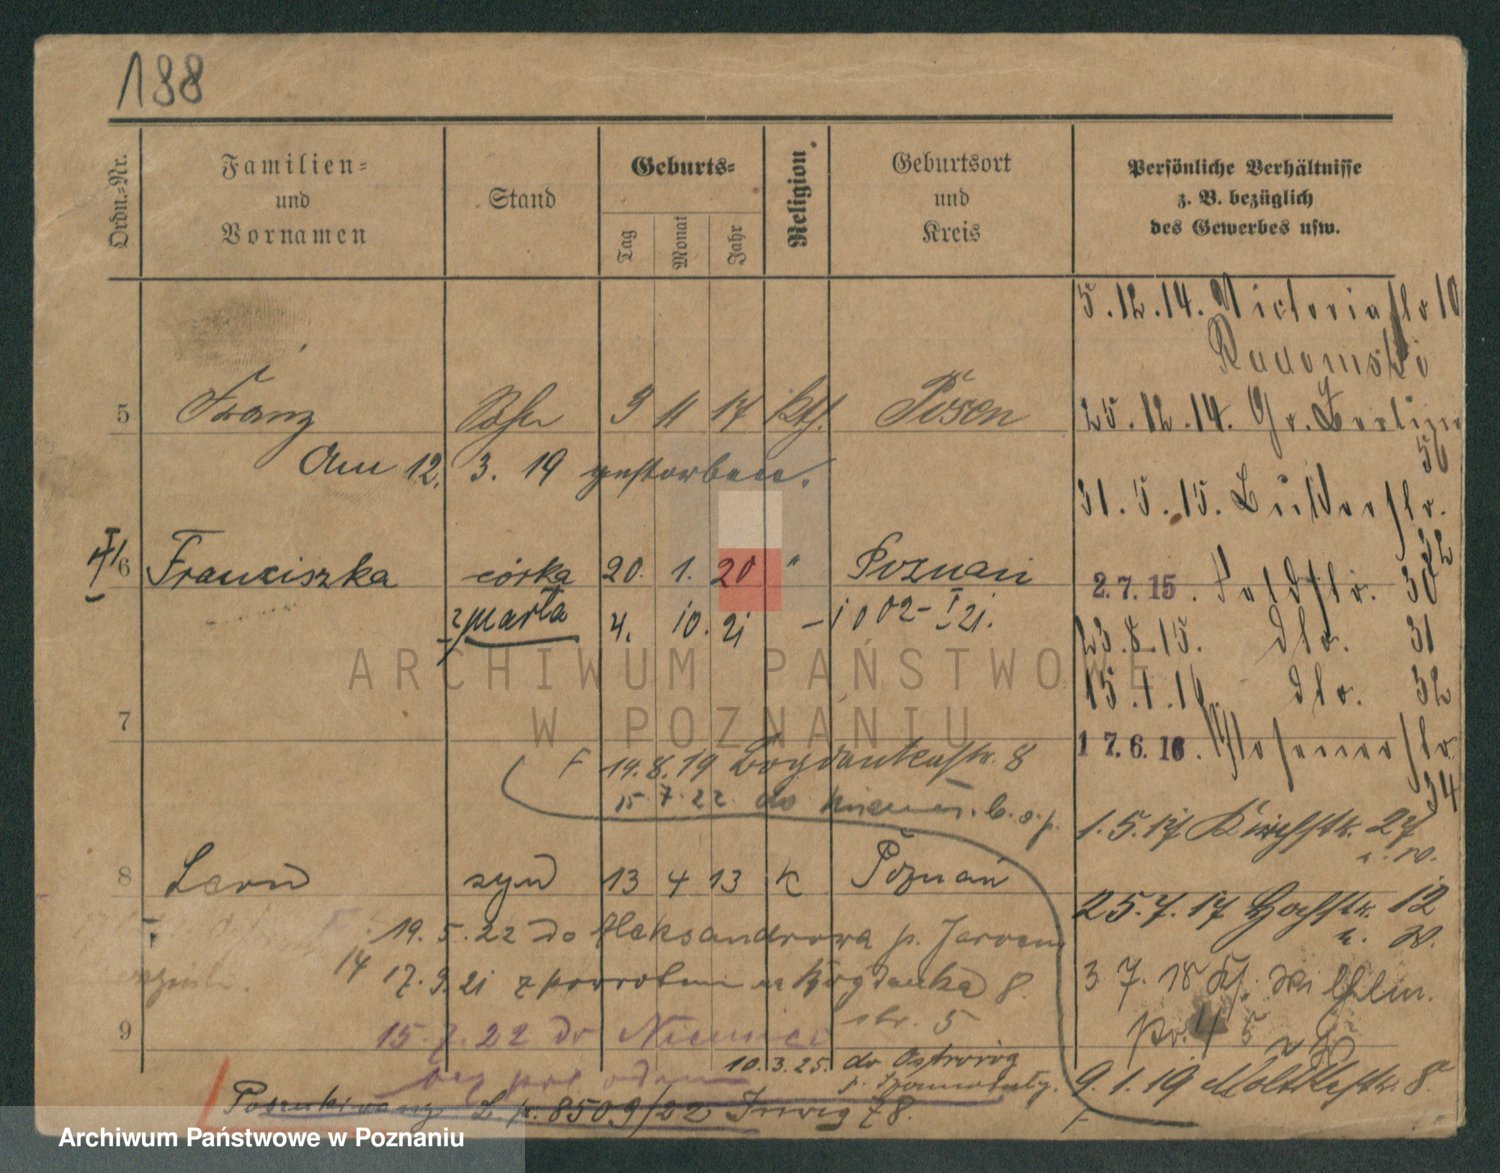 188
Ordn.-Nr.
Familien- und Vornamen
Stand
Geburts-
Tag
Monat
Jahr
Religion
Geburtsort und Kreis
Persönliche Verhältnisse z. B. bezüglich des Gewerbes usw.
5.12.14. Victoriastr 10
Radomski
5 Franz Sohn 9 11 17 Kth. Posen
25.12.14. Gr. Berliner
56
Am 12. 3. 19 gestorben.
31.5.15.
32
6 Franciszka córka 20. 1. 20 " Poznań
2.7.15. Feldstr. 30
zmarła 4. 10. 21 - 1002-I 21.
23.8.15. dto. 31
15.1.16 dto. 32
ARCHIWUM PAŃSTWOWE
W POZNANIU
7
17.6.16. 34
F 14.8.19 Bogdankastr. 8
15.7.22. do Niemiec. b. o. p.
1.5.17 Kirchstr. 27
u. W.
8 Leon syn 13 4 13 K Poznań
25.7.17 Hochstr. 12
u. W.
19.5.22 do Aleksandrowa p. Jarocin
14 17.9.21 z powrotem na Bogdanka 8.
3.7.18
str. 5
9
15.7.22 do Niemiec
bez pod
10.3.25. do Ostroróg
p. Szamotuły.
9.1.19 Moltkestr. 8
Poszukiwany L. p. 8509/22 78.
Archiwum Państwowe w Poznaniu